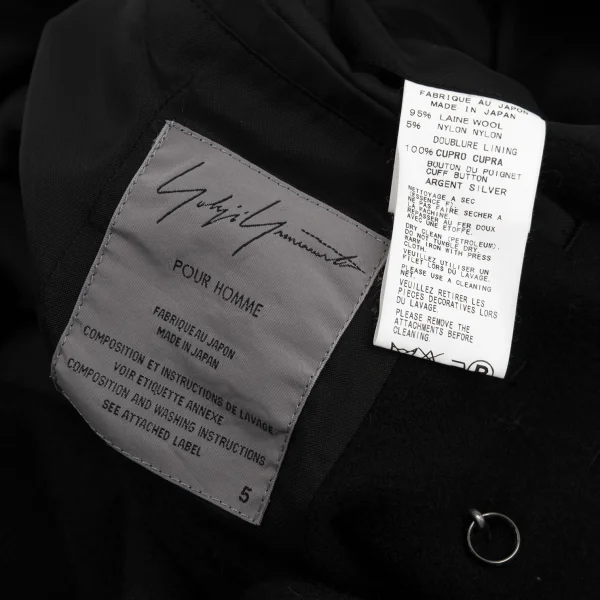 Yohji Yamamoto
POUR HOMME
FABRIQUE AU JAPON
MADE IN JAPAN
COMPOSITION ET INSTRUCTIONS DE LAVAGE
VOIR ETIQUETTE ANNEXE
COMPOSITION AND WASHING INSTRUCTIONS
SEE ATTACHED LABEL
5
FABRIQUE AU JAPON
MADE IN JAPAN
95% LAINE WOOL
5% NYLON NYLON
DOUBLURE LINING
100% CUPRO CUPRA
BOUTON DU POIGNET
CUFF BUTTON
ARGENT SILVER
NETTOYAGE A SEC
(ESSENCE F).
NE PAS FAIRE SECHER A
LA MACHINE.
REPASSER AU FER DOUX
AVEC UNE ETOFFE.
DRY CLEAN (PETROLEUM).
DO NOT TUMBLE DRY.
WARM IRON WITH PRESS
CLOTH.
VEUILLEZ UTILISER UN
FILET LORS DU LAVAGE.
PLEASE USE A CLEANING
NET.
VEUILLEZ RETIRER LES
PIECES DECORATIVES LORS
DU LAVAGE.
PLEASE REMOVE THE
ATTACHMENTS BEFORE
CLEANING.